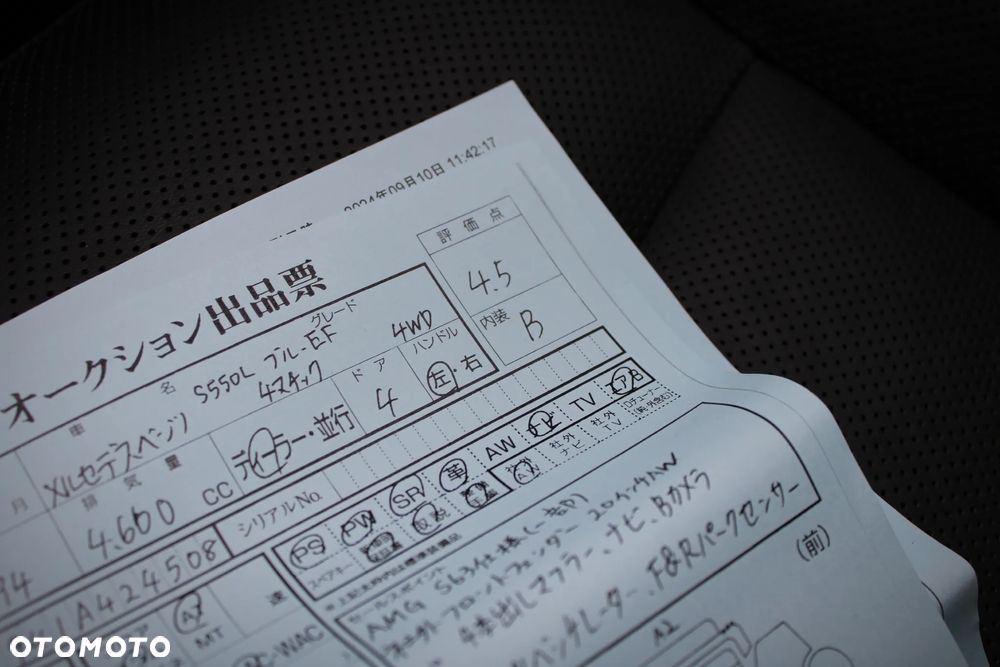 2024年09月10日 11:42:17
オークション出品票
評価点
4.5
内装 B
車 名 グレード
メルセデスベンツ S550L ブルーEF
4マチック 4WD
月 排気量 ドア ハンドル
4.600 CC ディーラー・並行 4 左・右
シリアルNo.
94
1A424508
PS PW SR 革 AW ナビ TV エアB
スペアキー 取説 社外ナビ 社外TV
AT
MT
速
WAC
セールスポイント
AMG S63仕様
フロントフェンダー 20インチAW
4本出しマフラー、ナビ、Bカメラ
ベンチレーター、F&Rパークセンサー
(前)
A2
OTOMOTO